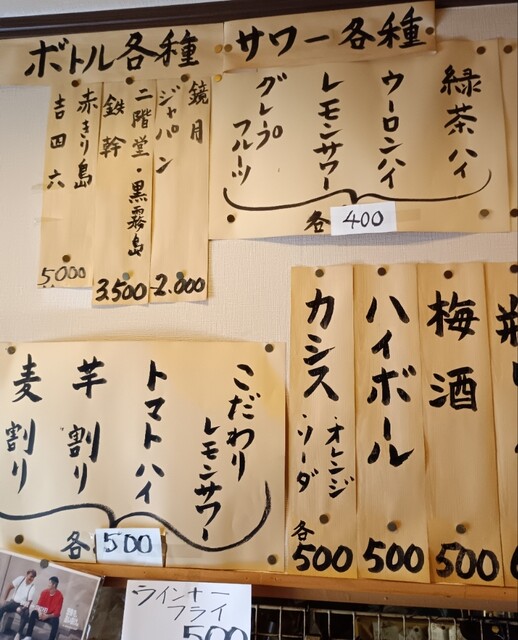 ボトル各種
鏡月
ジャパン
2.000
二階堂・黒霧島
鉄幹
3.500
赤きり島
吉四六
5000
サワー各種
緑茶ハイ
ウーロンハイ
レモンサワー
グレープ
フルーツ
各400
梅酒
500
ハイボール
500
カシス
・オレンジ
・ソーダ
各500
こだわり
レモンサワー
トマトハイ
芋割り
麦割り
各500
ウインナー
フライ
500